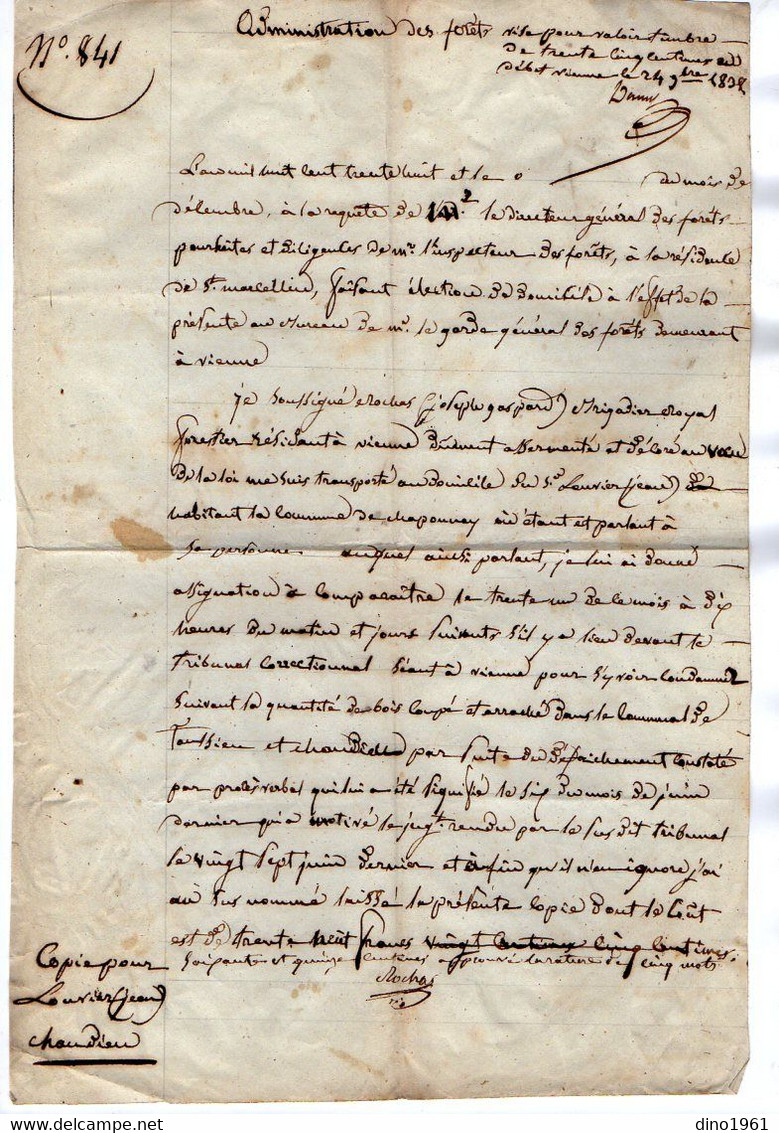 N.º 841
Administration des forêts
visé pour valoir timbre
de trente cinq centimes en
débet vienne le 24 9bre 1838
L'an mil huit cent trente huit et le du mois de
décembre, à la requête de Mr. le directeur général des forêts
poursuites et diligences de mr. l'inspecteur des forêts, à la résidence
de St. marcellin, faisant élection de domicile à l'effet de la
présente au Bureau de mr. le garde général des forêts demeurant
à vienne
Je soussigné Rochas (joseph gaspard) Brigadier Royal
forestier résidant à vienne dûment assermenté et décoré au vœu
de la loi me suis transporté au domicile du Sr. Louvier (jean)
habitant la commune de chaponnay où étant et parlant à
sa personne auquel ainsi parlant, je lui ai donné
assignation à comparaître le trente un de ce mois à dix
heures du matin et jours suivants s'il y a lieu devant le
Tribunal correctionnel séant à vienne pour s'y voir condamner
suivant la quantité de bois coupé et arraché dans le communal de
Toussieu et chandieu par suite du défrichement constaté
par procès verbal qui lui a été signifié le six du mois de juin
dernier qui a motivé le jugt. rendu par le sus dit tribunal
le vingt sept juin dernier et afin qu'il n'en ignore j'ai
au sus nommé laissé la présente copie dont le coût
est de trente neuf francs vingt centimes cinq centimes.
soixante et quinze centimes approuvé la rature de cinq mots
Rochas
Copie pour
Louvier (jean)
chandieu
dino1961